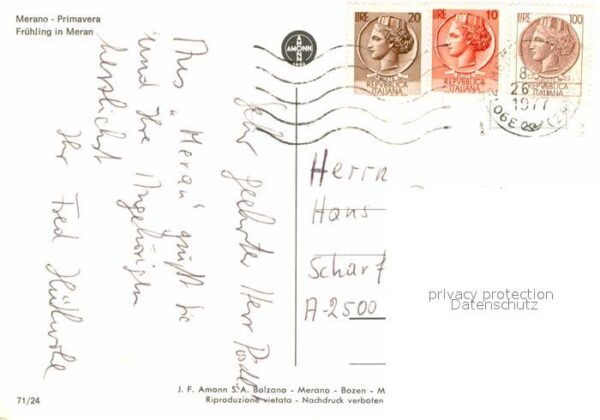 Merano - Primavera
Frühling in Meran
AMONN
LIRE 20
REPVBBLICA
ITALIANA
LIRE 10
REPVBBLICA
ITALIANA
LIRE 100
REPVBBLICA
ITALIANA
26
1977
39
Sehr geehrter Herr
Aus "Meran" grüßt Sie
und Ihre Angehörigen
herzlichst
Ihr Fred
Herrn
Hans
Scharf
A-2500
privacy protection
Datenschutz
J. F. Amonn S.A. Bolzano - Merano - Bozen - M
Riproduzione vietata - Nachdruck verboten
71/24